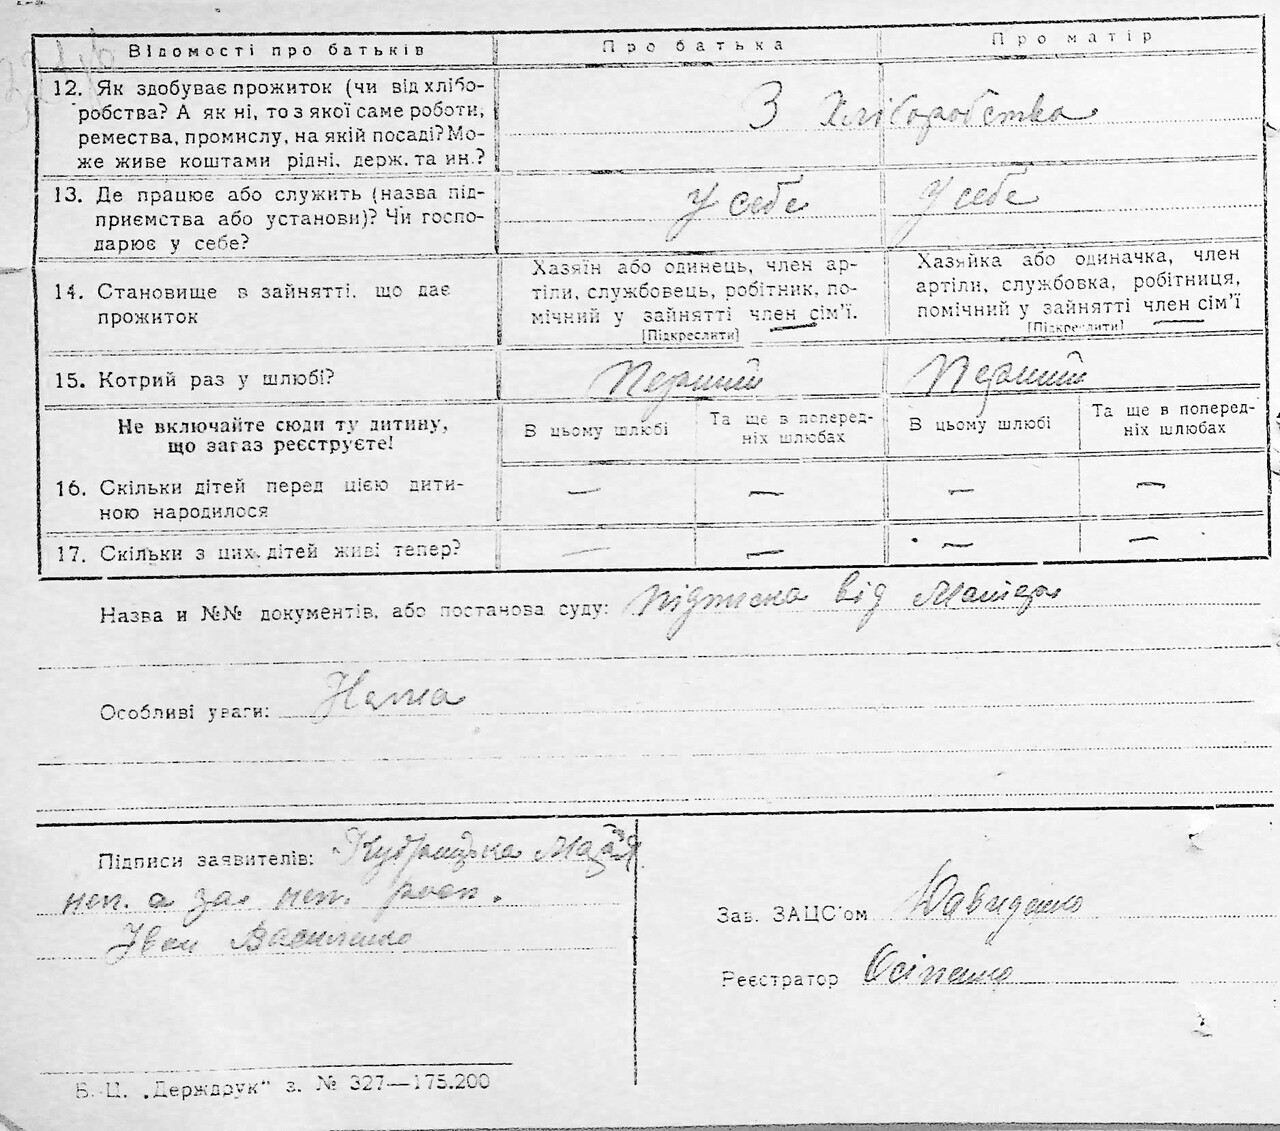 Відомості про батьків Про батька Про матір
12. Як здобуває прожиток (чи від хлібо-
робства? А як ні, то з якої саме роботи,
ремества, промислу, на якій посаді? Мо-
же живе коштами рідні, держ. та ин.?
З хліборобства
13. Де працює або служить (назва під-
приємства або установи)? Чи госпо-
дарює у себе?
У себе У себе
14. Становище в зайнятті, що дає
прожиток
Хазяїн або одинець, член ар-
тіли, службовець, робітник, по-
мічний у зайнятті член сім'ї.
[Підкреслити]
Хазяйка або одиначка, член
артіли, службовка, робітниця,
помічний у зайнятті член сім'ї
[Підкреслити]
15. Котрий раз у шлюбі? Перший Перший
Не включайте сюди ту дитину,
що загаз реєструєте!
В цьому шлюбі
Та ще в поперед-
ніх шлюбах
В цьому шлюбі
Та ще в поперед-
ніх шлюбах
16. Скільки дітей перед цією дити-
ною народилося
— — — —
17. Скільки з цих дітей живі тепер? — — — —
Назва и №№ документів, або постанова суду: підписка від матери
Особливі уваги: Нема
Підписи заявителів:
неп. а за неп. росп.
Іван Василенко
Зав. ЗАЦС'ом Давиденко
Реєстратор Осіпенко
Б. Ц. „Держдрук" з. № 327—175.200